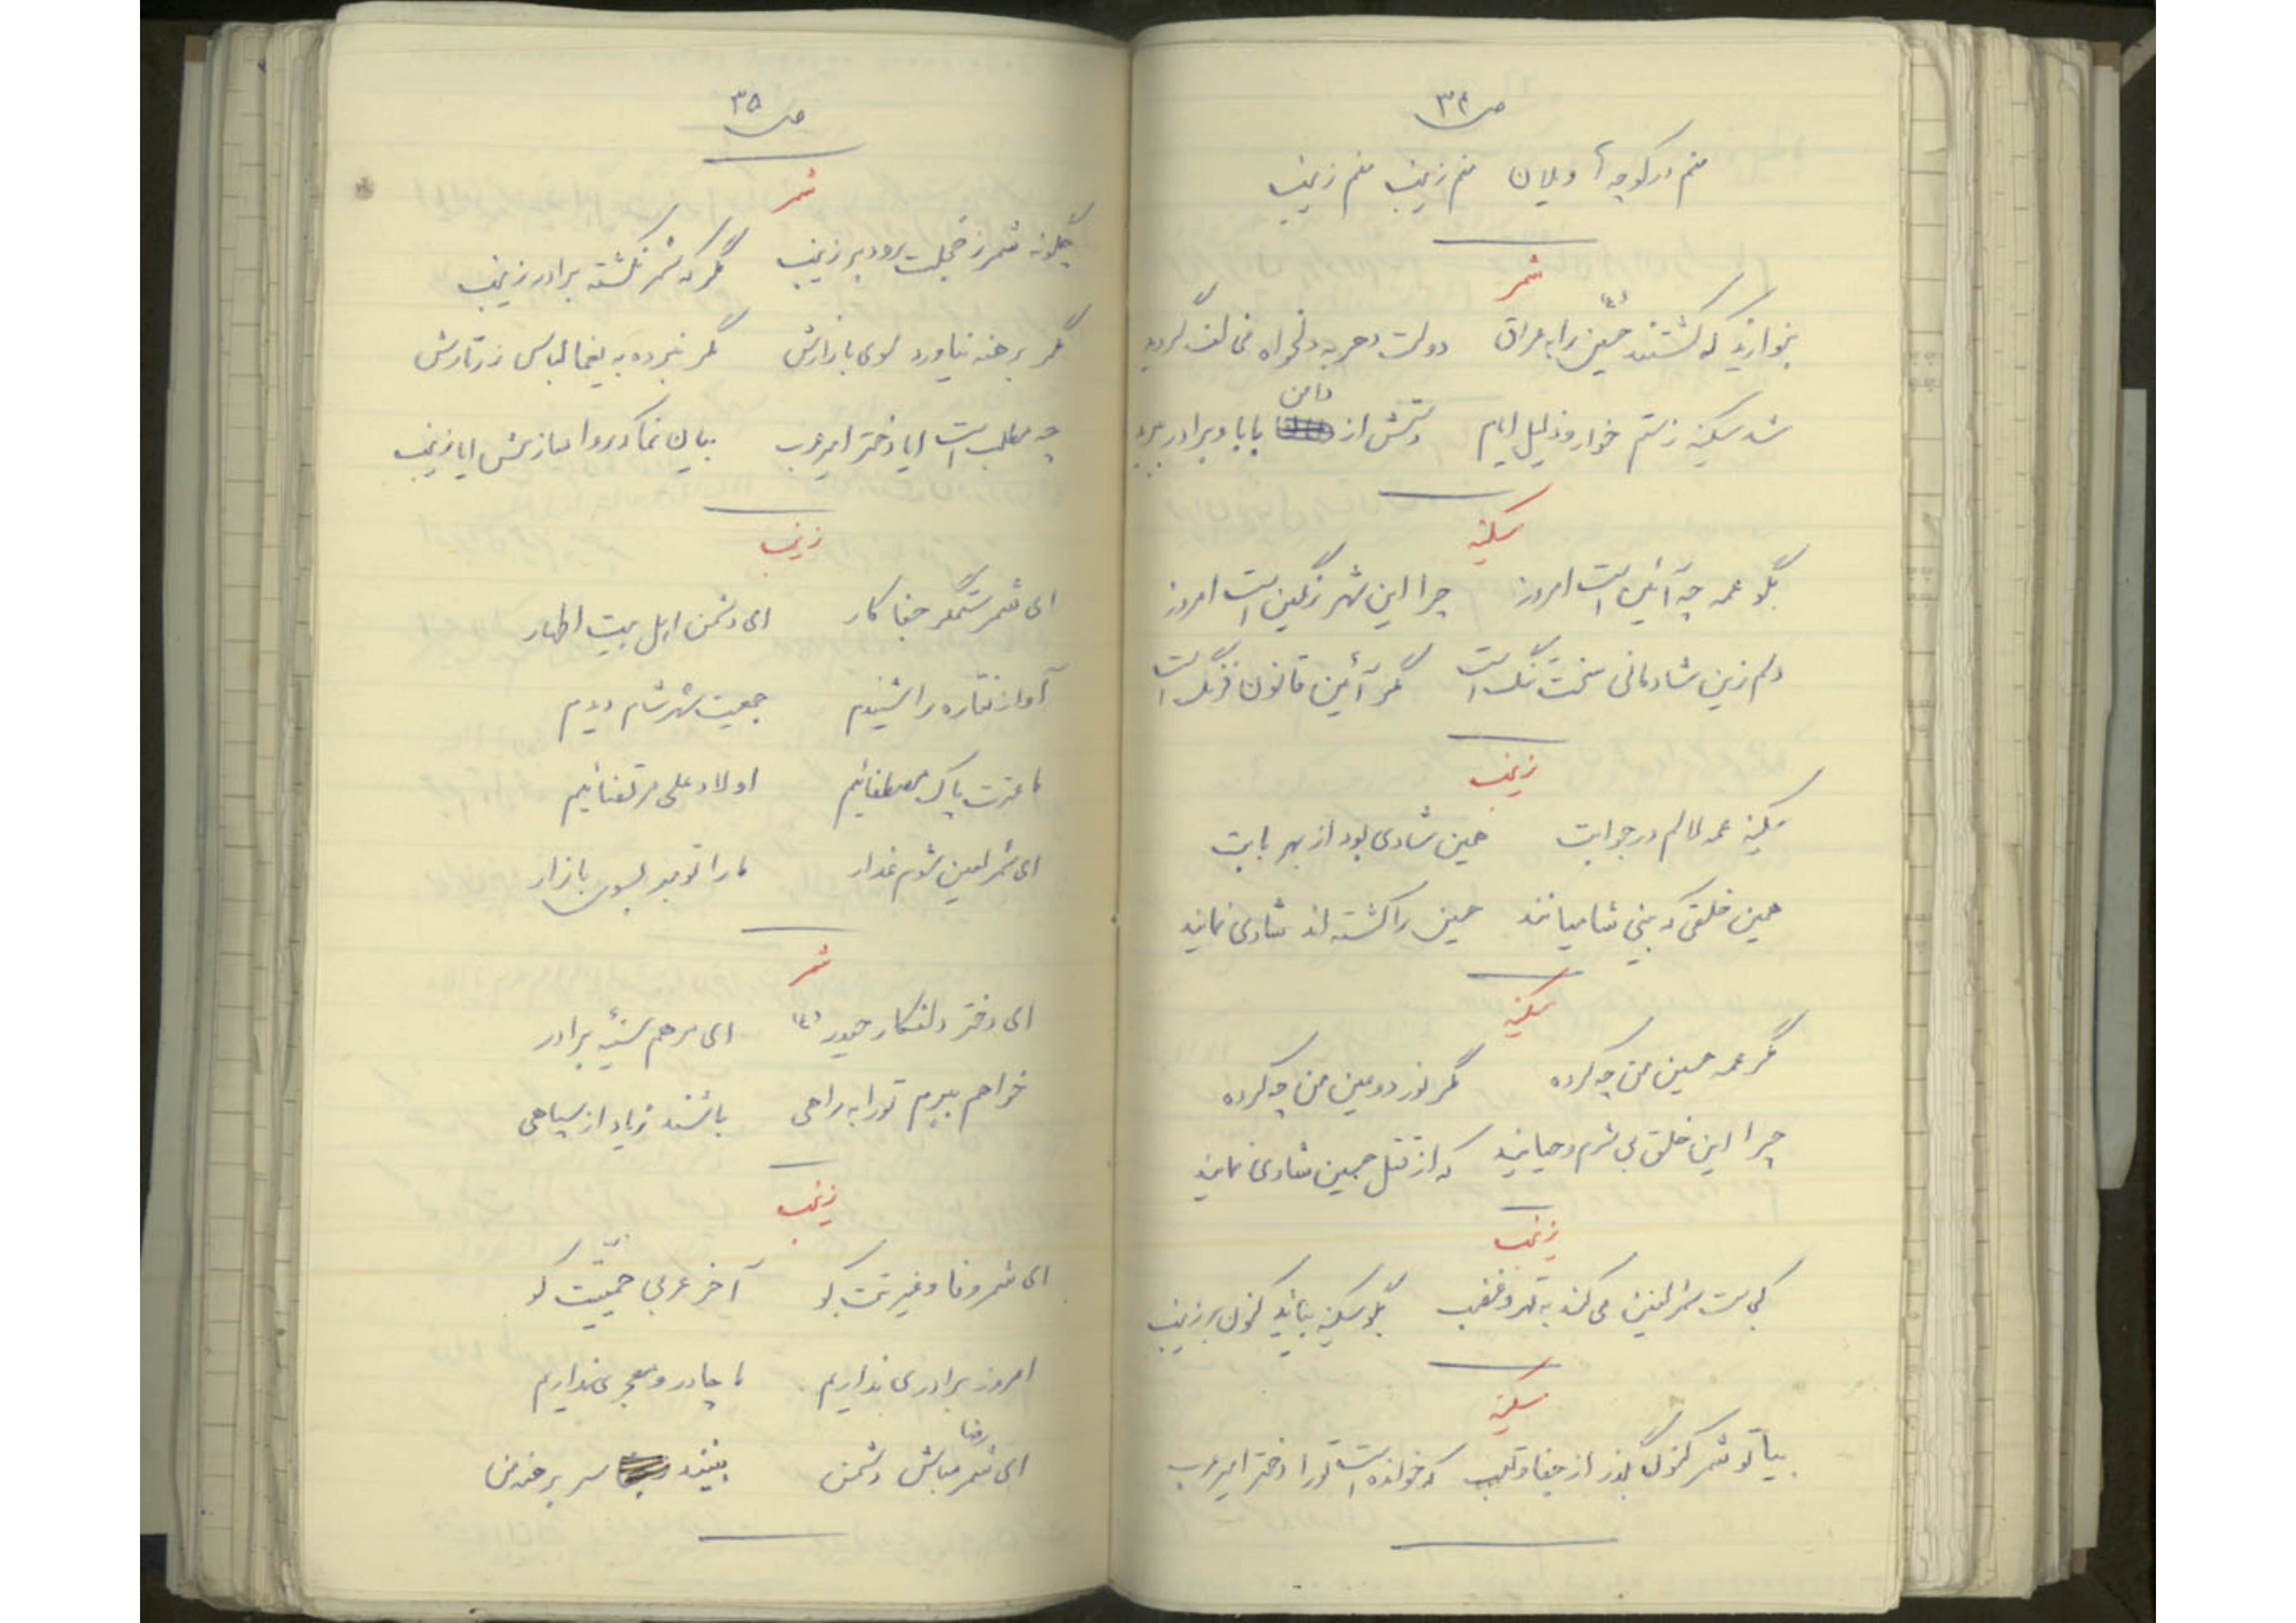 ص ۳۴
منم در کوچه‌ها ویلان منم زینب منم زینب
شمر
بنوازید که کشتند حسین را به عراق دولت دهر به دلخواه
شد سکینه ز ستم خوار و ذلیل ایام دستش از دامن بابا و برادر ببرید
سکینه
بگو عمه چه آئین است امروز چرا این شهر رنگین است امروز
دلم زین شادمانی سخت تنگ است مگر آئین قانون فرنگ است
زینب
سکینه عمه لالم در جوابت همین شادی بود از بهر بابت
همین خلقی که بینی شامیانند حسین را کشته‌اند شادی نمایند
سکینه
مگر عمه حسین من چه کرده مگر نور دو عین من چه کرده
چرا این خلق بی شرم و حیایند که از قتل حسین شادی نمایند
زینب
کجاست شمر لعین می کند به قهر و غضب بگو سکینه بیاید کنون بر زینب
سکینه
بیا تو شمر کنون بگذر از جفا و تعب که خوانده است تو را دختر امیر عرب
ص ۳۵
شمر
چگونه شمر ز خجلت رود بر زینب مگر که شمر نکشته برادر زینب
مگر برهنه نیاورد سوی بازارش مگر نبرده به یغما لباس زرتارش
چه مطلب است ایا دختر امیر عرب بیان نما ایا زینب
زینب
ای شمر ستمگر جفا کار ای دشمن اهل بیت اطهار
آواز نقاره را شنیدم جمعیت شهر شام دیدم
ما عترت پاک مصطفائیم اولاد علی مرتضائیم
ای شمر لعین شوم غدار ما را تو مبر بسوی بازار
شمر
ای دختر دلفکار حیدر (ع) ای مرهم سینهٔ برادر
خواهم ببرم تو را به راهی باشند زیاد از سپاهی
زینب
ای شمر وفا و غیرتت کو آخر عربی حمیّتت کو
امروز برادری نداریم ما چادر و معجری نداریم
ای شمر مباش رضا دشمن بینند سر برهنه من